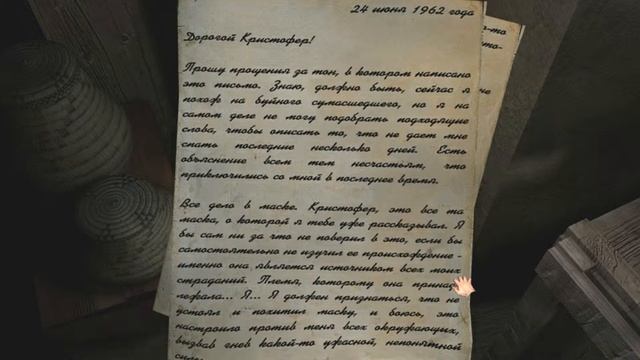 24 июня 1962 года
Дорогой Кристофер!
Прошу прощения за тон, в котором написано
это письмо. Знаю, должно быть, сейчас я
похож на буйного сумасшедшего, но я на
самом деле не могу подобрать подходящие
слова, чтобы описать то, что не дает мне
спать последние несколько дней. Есть
объяснение всем тем несчастьям, что
приключились со мной в последнее время.
Все дело в маске. Кристофер, это все та
маска, о которой я тебе уже рассказывал. Я
бы сам ни за что не поверил в это, если бы
самостоятельно не изучил ее происхождение -
именно она является источником всех моих
страданий. Племя, которому она принад
лежала... Я... Я должен признаться, что не
устоял и похитил маску, и боюсь, это
настроило против меня всех окружающих,
вызвав гнев какой-то ужасной, непонятной